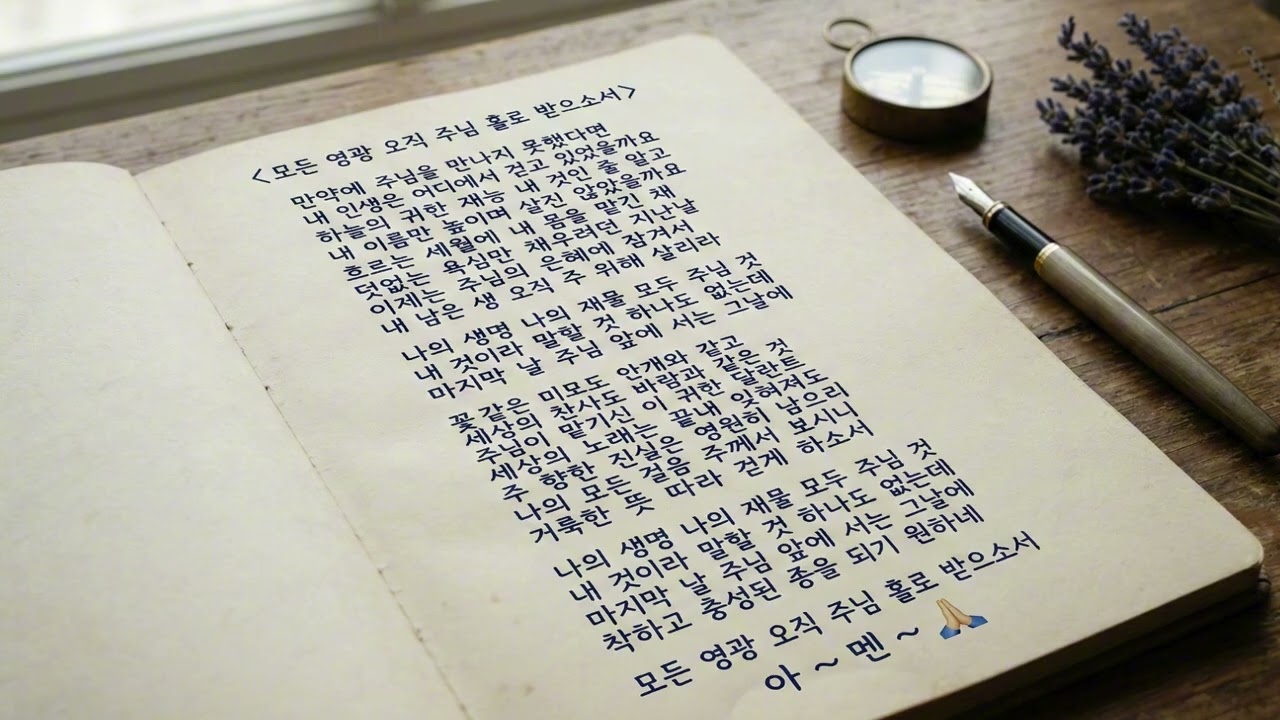 <모든 영광 오직 주님 홀로 받으소서>
만약에 주님을 만나지 못했다면
내 인생은 어디에서 걷고 있었을까요
하늘의 귀한 재능 내 것인 줄 알고
내 이름만 높이며 살진 않았을까요
흐르는 세월에 내 몸을 맡긴 채
덧없는 욕심만 채우려던 지난날
이제는 주님의 은혜에 잠겨서
내 남은 생 오직 주 위해 살리라
나의 생명 나의 재물 모두 주님 것
내 것이라 말할 것 하나도 없는데
마지막 날 주님 앞에 서는 그날에
꽃 같은 미모도 안개와 같고
세상의 찬사도 바람과 같은 것
주님이 맡기신 이 귀한 달란트
세상의 노래는 끝내 잊혀져도
주 향한 진실은 영원히 남으리
나의 모든 걸음 주께서 보시니
거룩한 뜻 따라 걷게 하소서
나의 생명 나의 재물 모두 주님 것
내 것이라 말할 것 하나도 없는데
마지막 날 주님 앞에 서는 그날에
착하고 충성된 종을 되기 원하네
모든 영광 오직 주님 홀로 받으소서
아 ~ 멘 ~ 🙏